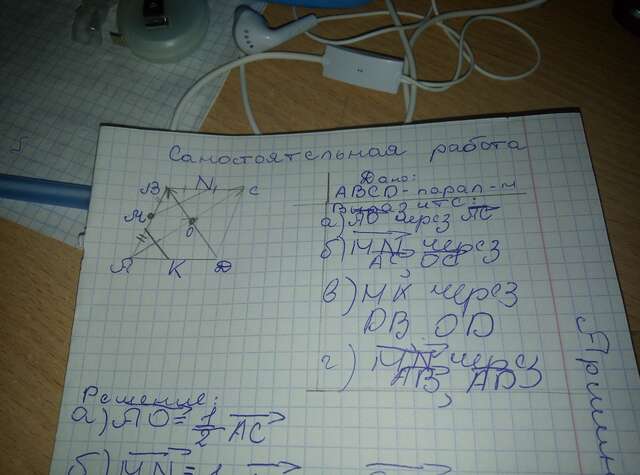 Самостоятельная работа
B N C
M
O
A K D
Дано:
ABCD - парал-м
Выразить:
а) AO через AC
б) MN через
AC, OC
в) MK через
DB OD
г) MN через
AB, AD
Решение:
а) AO = 1/2 AC
б) MN = 1